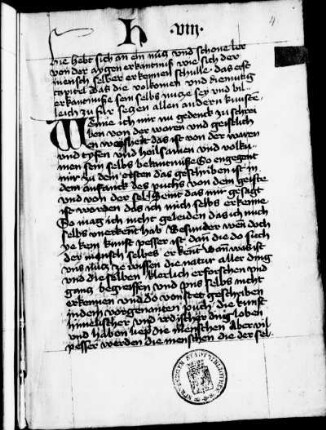 H . viij .
4
die hebt sich an ein nucz und schone ler
von der aygen erkantnus wie sich der
mensch selber erkennen schulle das erst
capitel das die volkomen und diemutig
erkantnusse sein selbs nucze sey und bil
leich zu fur seczen allen andern kunsten
Wenne ich mir nu gedenck zu schrei
ben von der waren und geistlich
en weysheit das ist von der waren
und tyfen und heilsamen und volku
men sein selbs bekantnusse So engegent
mir zu dem ersten das geschriben ist in
dem anfanck des puchs von dem geiste
und von der sel Seint das mir gesagt
ist worden das ich mich selbs erkenne
So mag ich nicht geleiden das ich mich
selbs unerkent hab Besunder wen doch
ye kein kunst pesser ist dan die do sich
der mensch selbes erkent wan was ist
uns nucz ze wissen die natur aller ding
und die selben clerlich erforschen und
gancz begreiffen und uns selbs nicht
erkennen und do von stet geschriben
in dem vorgenanten puch die kunst
himelischer und irdischer ding loben
und haben liep die menschen Aber vil
pesser werden die menschen die der sel